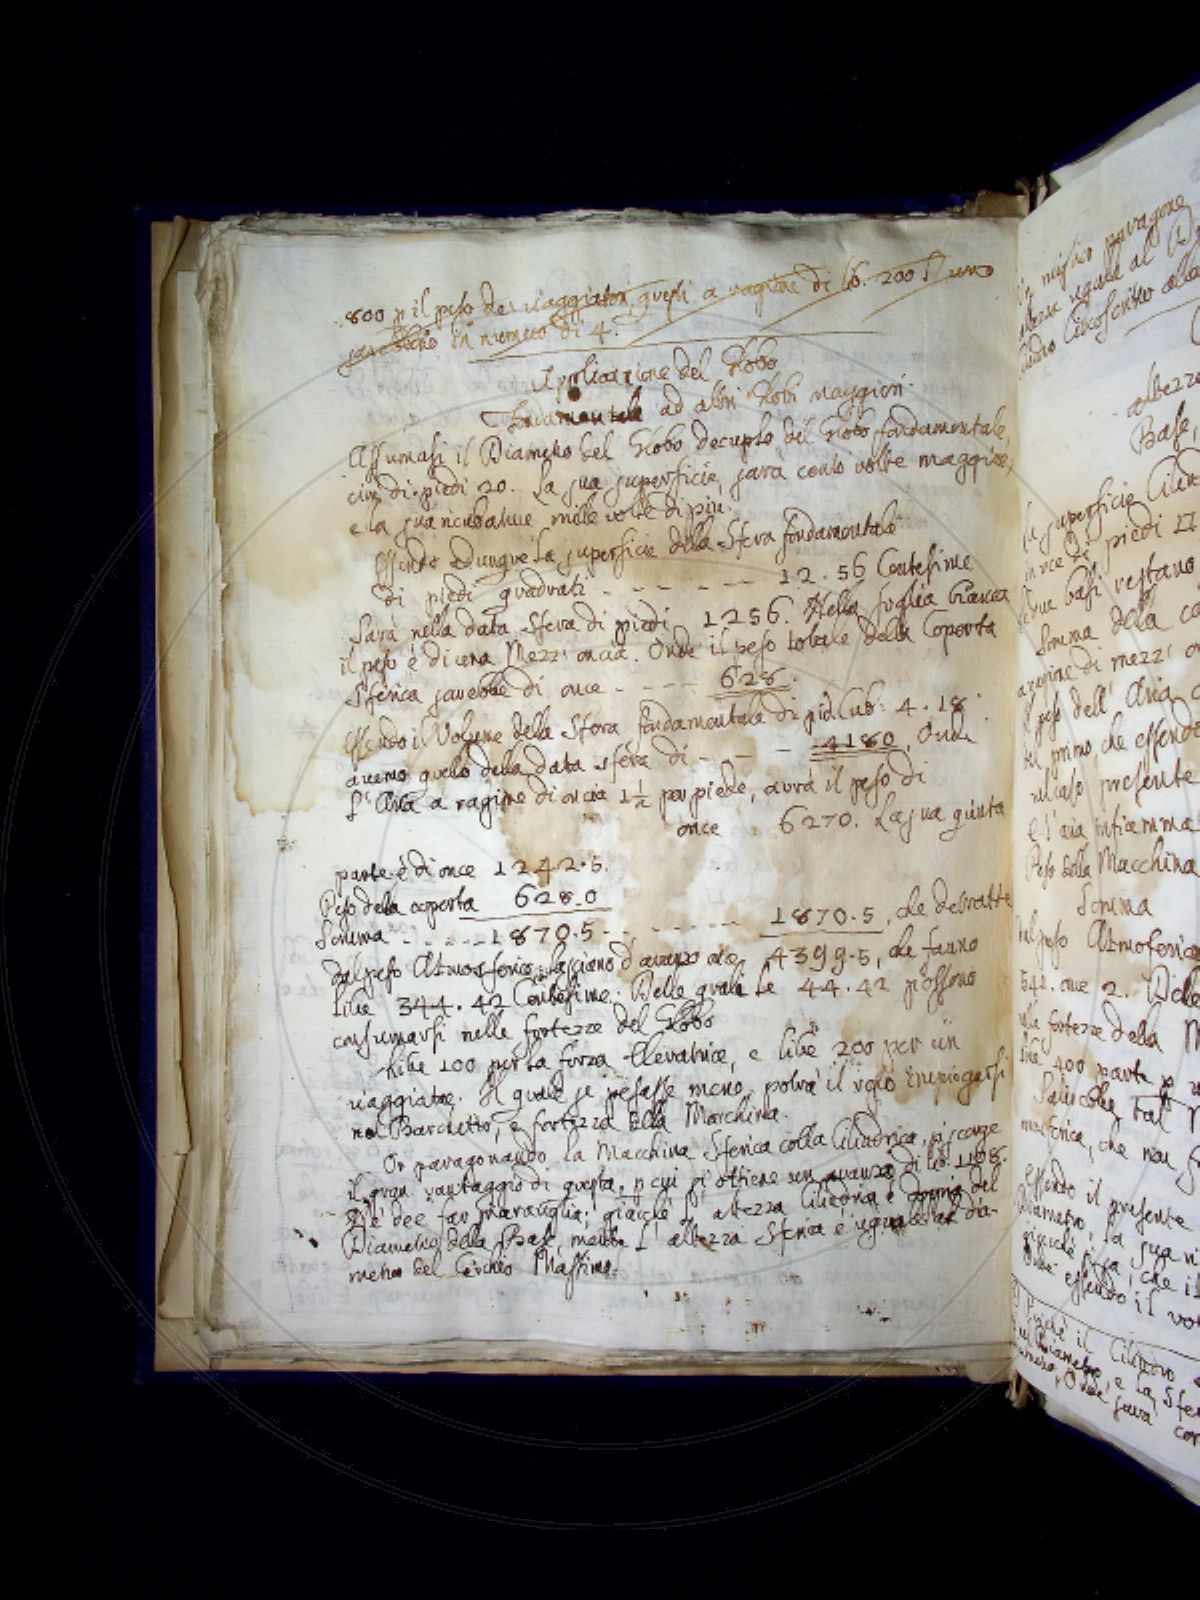 800 p il peso de viaggiatori, questi a ragione di lib. 200 l'uno
sarebbero in numero di 4.
Applicazione del Globo
fondamentale ad altri Globi maggiori.
Assumasi il Diametro del Globo decuplo del Globo fondamentale,
cioè di piedi 20. La sua superficie, sarà cento volte maggiore,
e la sua incubatura mille volte di più.
Essendo dunque la superficie della Sfera fondamentale
di piedi quadrati - - - - - - 12.56 Centesime
Sarà nella data Sfera di piedi 1256. Nella foglia bianca
il peso è di una Mezz'oncia. Onde il peso totale della Coperta
Sferica sarebbe di once - - - - 628.
Essendo il Volume della Sfera fondamentale di pied. Cub: 4.18
avremo quello della data sfera di - - - 4180, Onde
L'Aria a ragione di oncia 1 1/2 per piede, avrà il peso di
once 6270. La sua quinta
parte è di once 1242.5.
Peso della coperta 628.0
Somma - - - - - 1870.5 - - - - - - 1870.5, che detratte
dal peso Atmosferico, lasciano d'avanzo once 4399.5, che fanno
libe 344.42 Centesime. Delle quali le 44.42 possono
consumarsi nelle fortezze del Globo
libe 100 per la forza Elevatrice, e libe 200 per un
viaggiatore. Il quale se pesasse meno, potrà il voto impiegarsi
nel Barchetto, e fortezza della Macchina.
Or paragonando la Macchina Sferica colla Cilindrica, si scorge
il gran vantaggio di questa, p cui si ottiene un avanzo di lib. 1108.
Nè dee far maraviglia; giacchè l'altezza Cilindrica è doppia del
Diametro della Base, mentre l'altezza Sferica è uguale al dia-
metro del Cerchio Massimo.
in miglior paragone
altezza uguale al
Cilindro Circoscritto alla
altezza
Base,
La superficie Cilind
piedi
due basi restano
Somma della co
a ragione di mezz'on
Il peso dell'Aria
nel primo, che essendo
nel caso presente
e l'aria infiamma
Peso della Macchina
Somma
dal peso Atmosferico
542. once 2. Delle
nelle fortezze della M
libe 400 parte p
tal
Sferica, che
Essendo il presente
Diametro, la sua
giacchè
Onde essendo il vo
il Cilindro
Diametro, e la Sfe
Onde sarà con